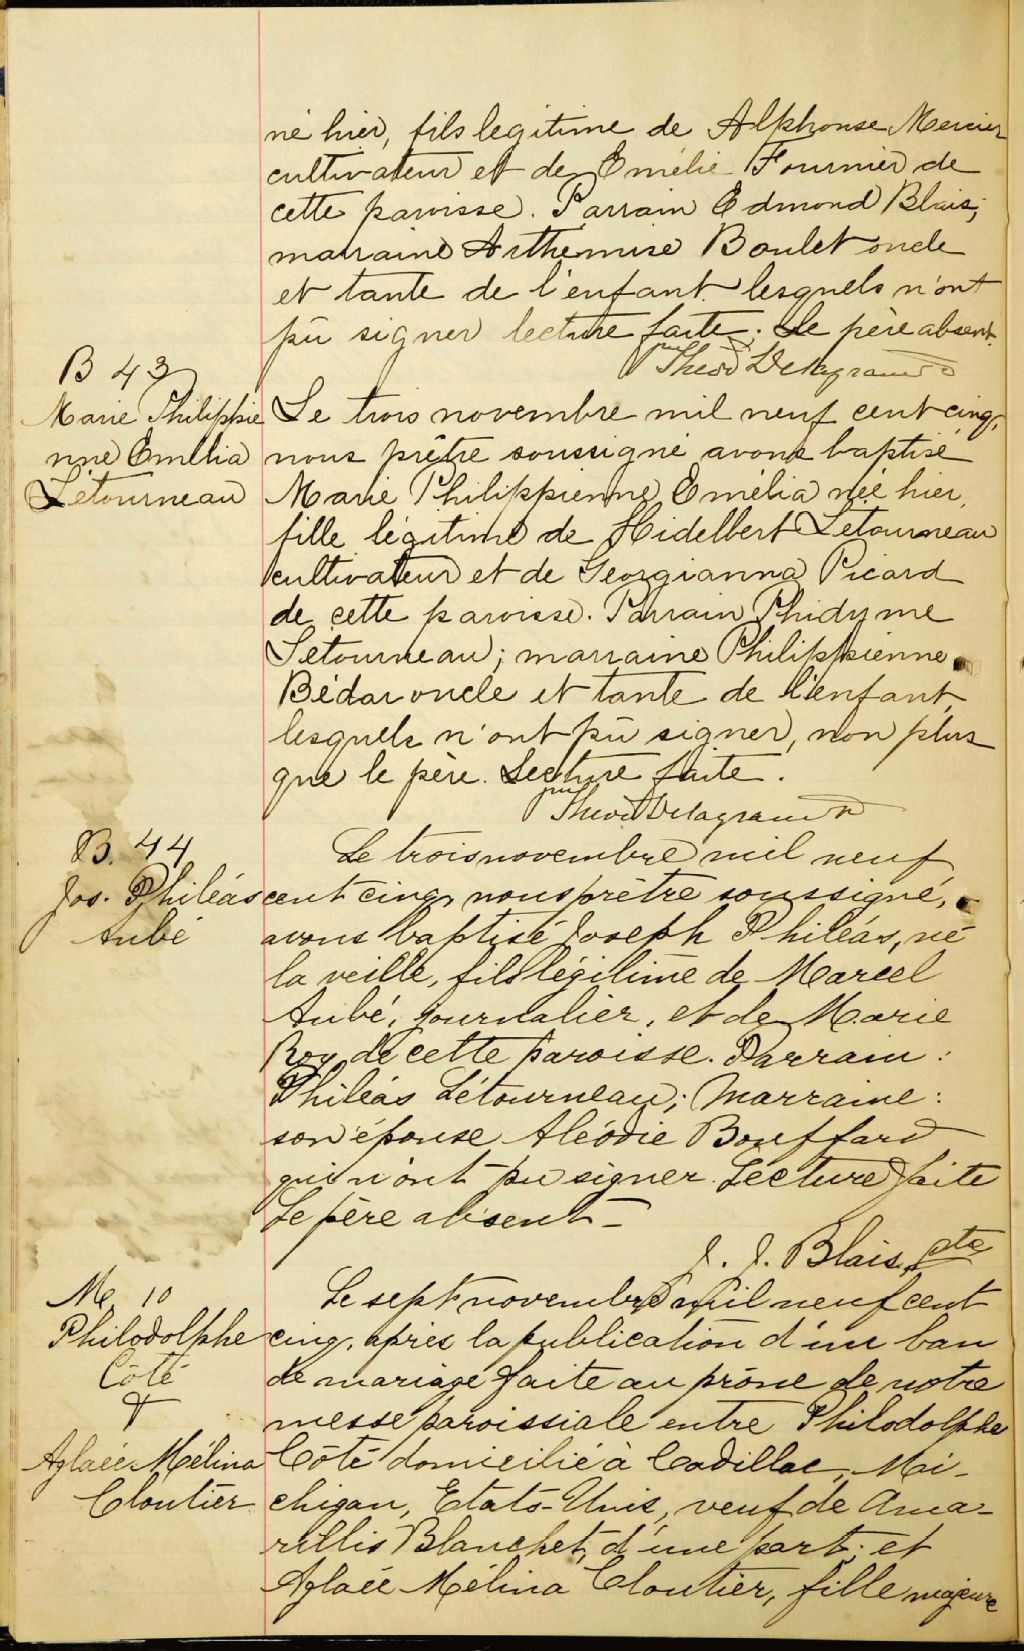 né hier, fils legitime de Alphonse Mercier
cultivateur et de Emélie Fournier de
cette paroisse. Parrain Edmond Blais;
marraine Arthemise Boulet oncle
et tante de l'enfant lesquels n'ont
pû signer lecture faite. Le père absent.
Theod Delagrave
B 43
Marie Philippie
nne Emélia
Létourneau
Le trois novembre mil neuf cent cinq,
nous prêtre soussigné avons baptisé
Marie Philippienne Emélia née hier,
fille légitime de Hidelbert Letourneau
cultivateur et de Georgianna Picard
de cette paroisse. Parrain Phidyme
Letourneau; marraine Philippienne
Bédar oncle et tante de l'enfant
lesquels n'ont pû signer, non plus
que le père. Lecture faite.
Theod Delagrave
B. 44
Jos. Philéas
Aubé
Le trois novembre mil neuf
cent cinq, nous prêtre soussigné,
avons baptisé Joseph Philéas, né
la veille, fils légitime de Marcel
Aubé, journalier, et de Marie
Roy de cette paroisse. Parrain:
Philéas Létourneau; Marraine:
son épouse Aléodie Bouffard
qui n'ont pu signer. Lecture faite
Le père absent -
J. J. Blais, ptre
M 10
Philodolphe
Côté
&
Aglaée Mélina
Cloutier
Le sept novembre mil neuf cent
cinq, après la publication d'un ban
de mariage faite au prône de notre
messe paroissiale entre Philodolphe
Côté domicilié à Cadillac, Mi-
chigan, Etats-Unis, veuf de Ama-
rillis Blanchet, d'une part; et
Aglaée Mélina Cloutier, fille majeure